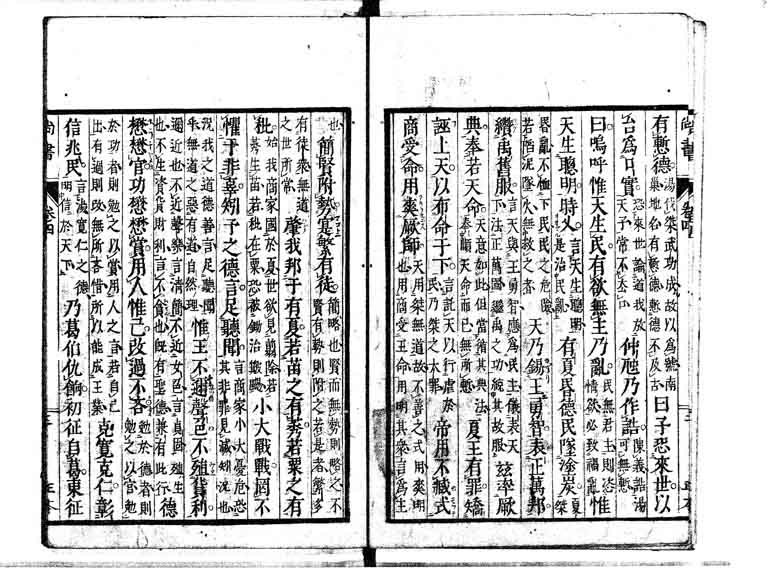 有慙德湯伐桀武功成故以爲號南巢地名有慙德慙德不及古曰予恐來世以
台爲口實恐來世論道我放天子常不去口仲虺乃作誥陳義誥湯可無慙
曰嗚呼惟天生民有欲無主乃亂民無君主則恣情欲必致禍亂惟
天生聰明時乂言天生聰明是治民亂有夏昏德民墜塗炭夏桀
昏亂不恤下民民之危險若陷泥墜火無救之者天乃錫王勇智表正萬邦
纘禹舊服言天與王勇智應爲民主儀表天下法正萬國繼禹之功統其故服茲率厥
典奉若天命天意如此但當循其典法奉順天命而已無所慙夏王有罪矯
誣上天以布命于下言託天以行虐於民乃桀之大罪帝用不臧式
商受命用爽厥師天用桀無道故不善之式用爽明也用商受王命用明其衆言爲主
也簡賢附勢寔繁有徒簡略也賢而無勢則略之不賢有勢則附之若是者繁多
有徒衆無道之世所常肇我邦于有夏若苗之有莠若粟之有
秕始我商家國於夏世欲見翦除若莠生苗若秕在粟恐被鋤治簸颺小大戰戰罔不
懼于非辜矧予之德言足聽聞言商家小大憂危恐其非罪見滅矧況也
況我之道德善言足聽聞乎無道之惡有道自然理惟王不邇聲色不殖貨利
邇近也不近聲樂言清簡不近女色言貞固殖生也不生資貨財利言不貪也既有聖德兼有此行德
懋懋官功懋懋賞用人惟己改過不吝勉於德者則勉之以官勉
於功者則勉之以賞用人之言若自己出有過則改無所吝惜所以能成王業克寬克仁彰
信兆民言湯寬仁之德明信於天下乃葛伯仇餉初征自葛東征
尚書
卷四